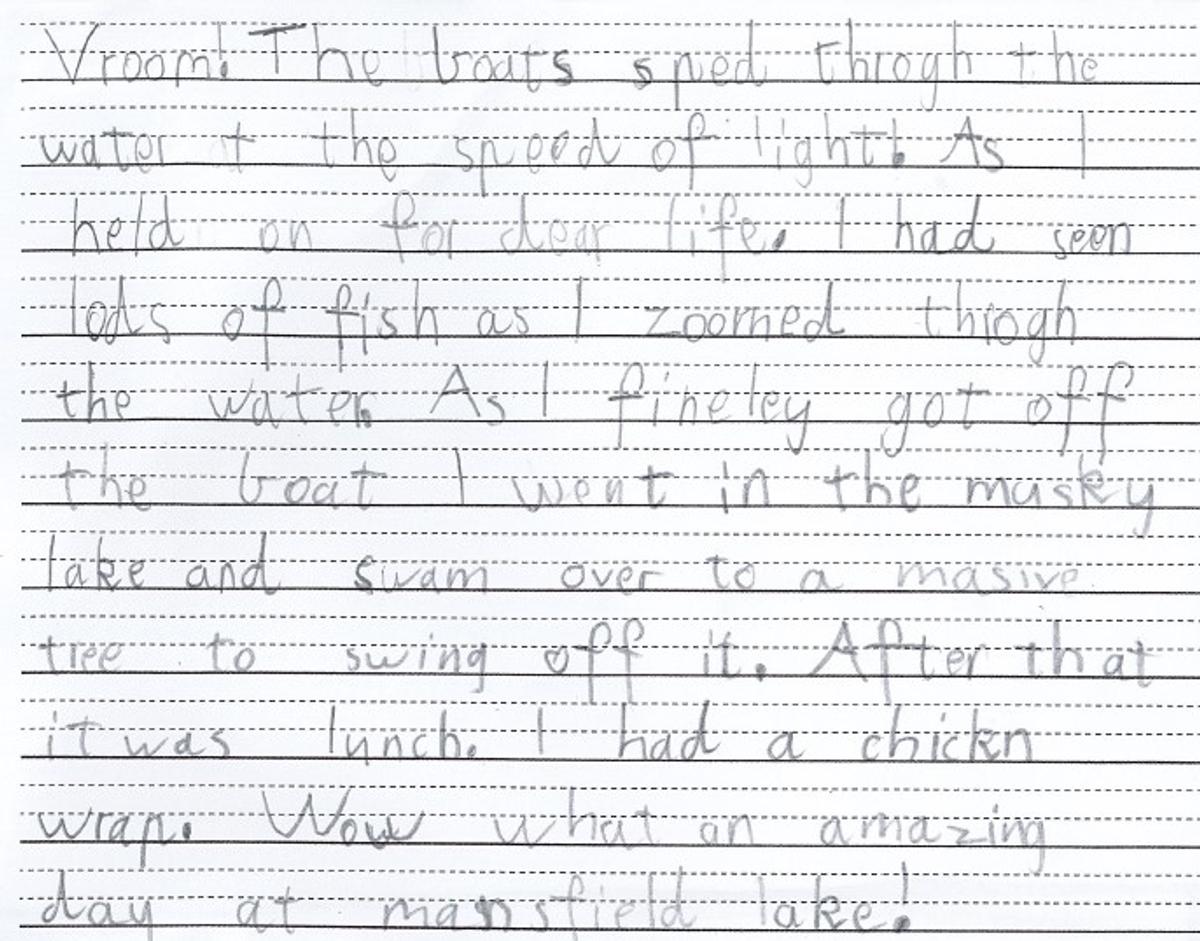 Vroom! The boats sped throgh the
water at the speed of light! As I
held on for dear life. I had seen
lods of fish as I zoomed throgh
the water. As I fineley got off
the boat I went in the musky
lake and swam over to a masive
tree to swing off it. After that
it was lunch. I had a chickn
wrap. Wow what an amazing
day at mansfield lake!